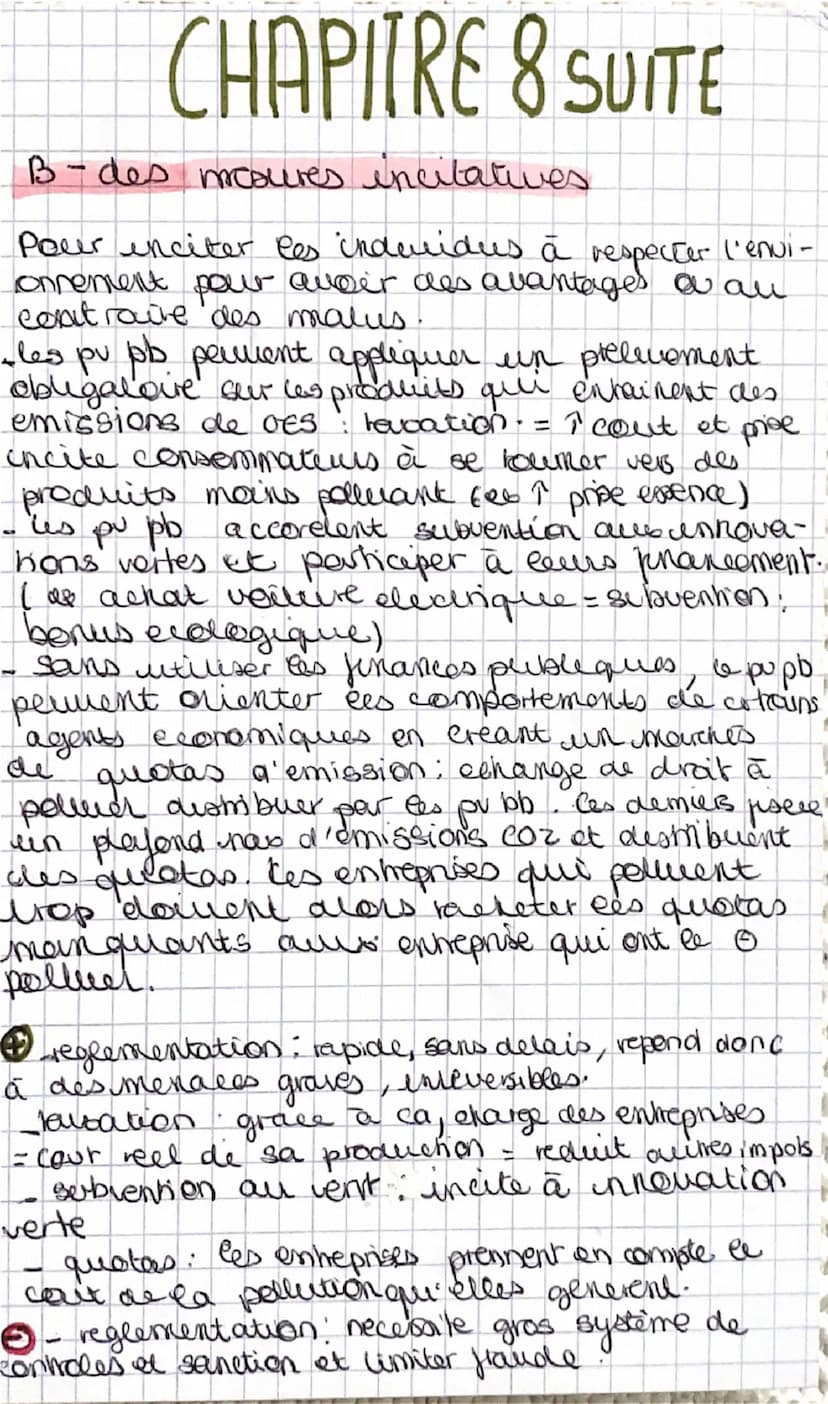 CHAPITRE 8 SUITE
B - des mesures incitatives
Pour inciter les individus à respecter l'envi-
onnement pour avoir des avantages ou au
contraire des malus.
- les pv pb peuvent appliquer un prelevement
obligatoire sur les produits qui entrainent des
emissions de GES : taxation. = ↑ cout et prix
incite consommateurs à se tourner vers des
produits moins polluant (ex ↑ prix essence)
- les pv pb accordent subvention aux innova-
tions vertes et participer à leurs financement.
(ex achat voiture electrique = subvention :
bonus ecologique)
- Sans utiliser les finances publiques, le pv pb
peuvent orienter les comportements de certains
agents economiques en creant un marches
de quotas d'emission : echange de droit à
polluer distribuer par les pv pb. Ces derniers fixe
un plafond max d'emissions CO2 et distribuent
des quotas. Les entreprises qui polluent
trop doivent alors racheter les quotas
manquants aux entreprise qui ont le ⊖
polluer.
⊕ - reglementation : rapide, sans delais, repond donc
à des menaces graves, irreversibles.
- taxation : grace à ca, charge des entreprises
= cout reel de sa production = reduit autres impots
- subvention au vert : incite à innovation
verte
- quotas : les entreprises prennent en compte le
cout de la pollution qu'elles generent.
⊖ - reglementation : necessite gros système de
controles et sanction et limiter fraude.